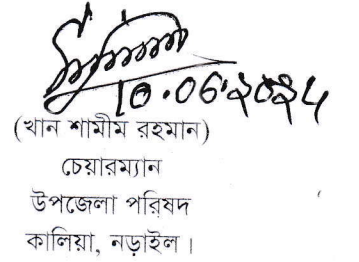 10.06.২০২৪
(খান শামীম রহমান)
চেয়ারম্যান
উপজেলা পরিষদ
কালিয়া, নড়াইল।